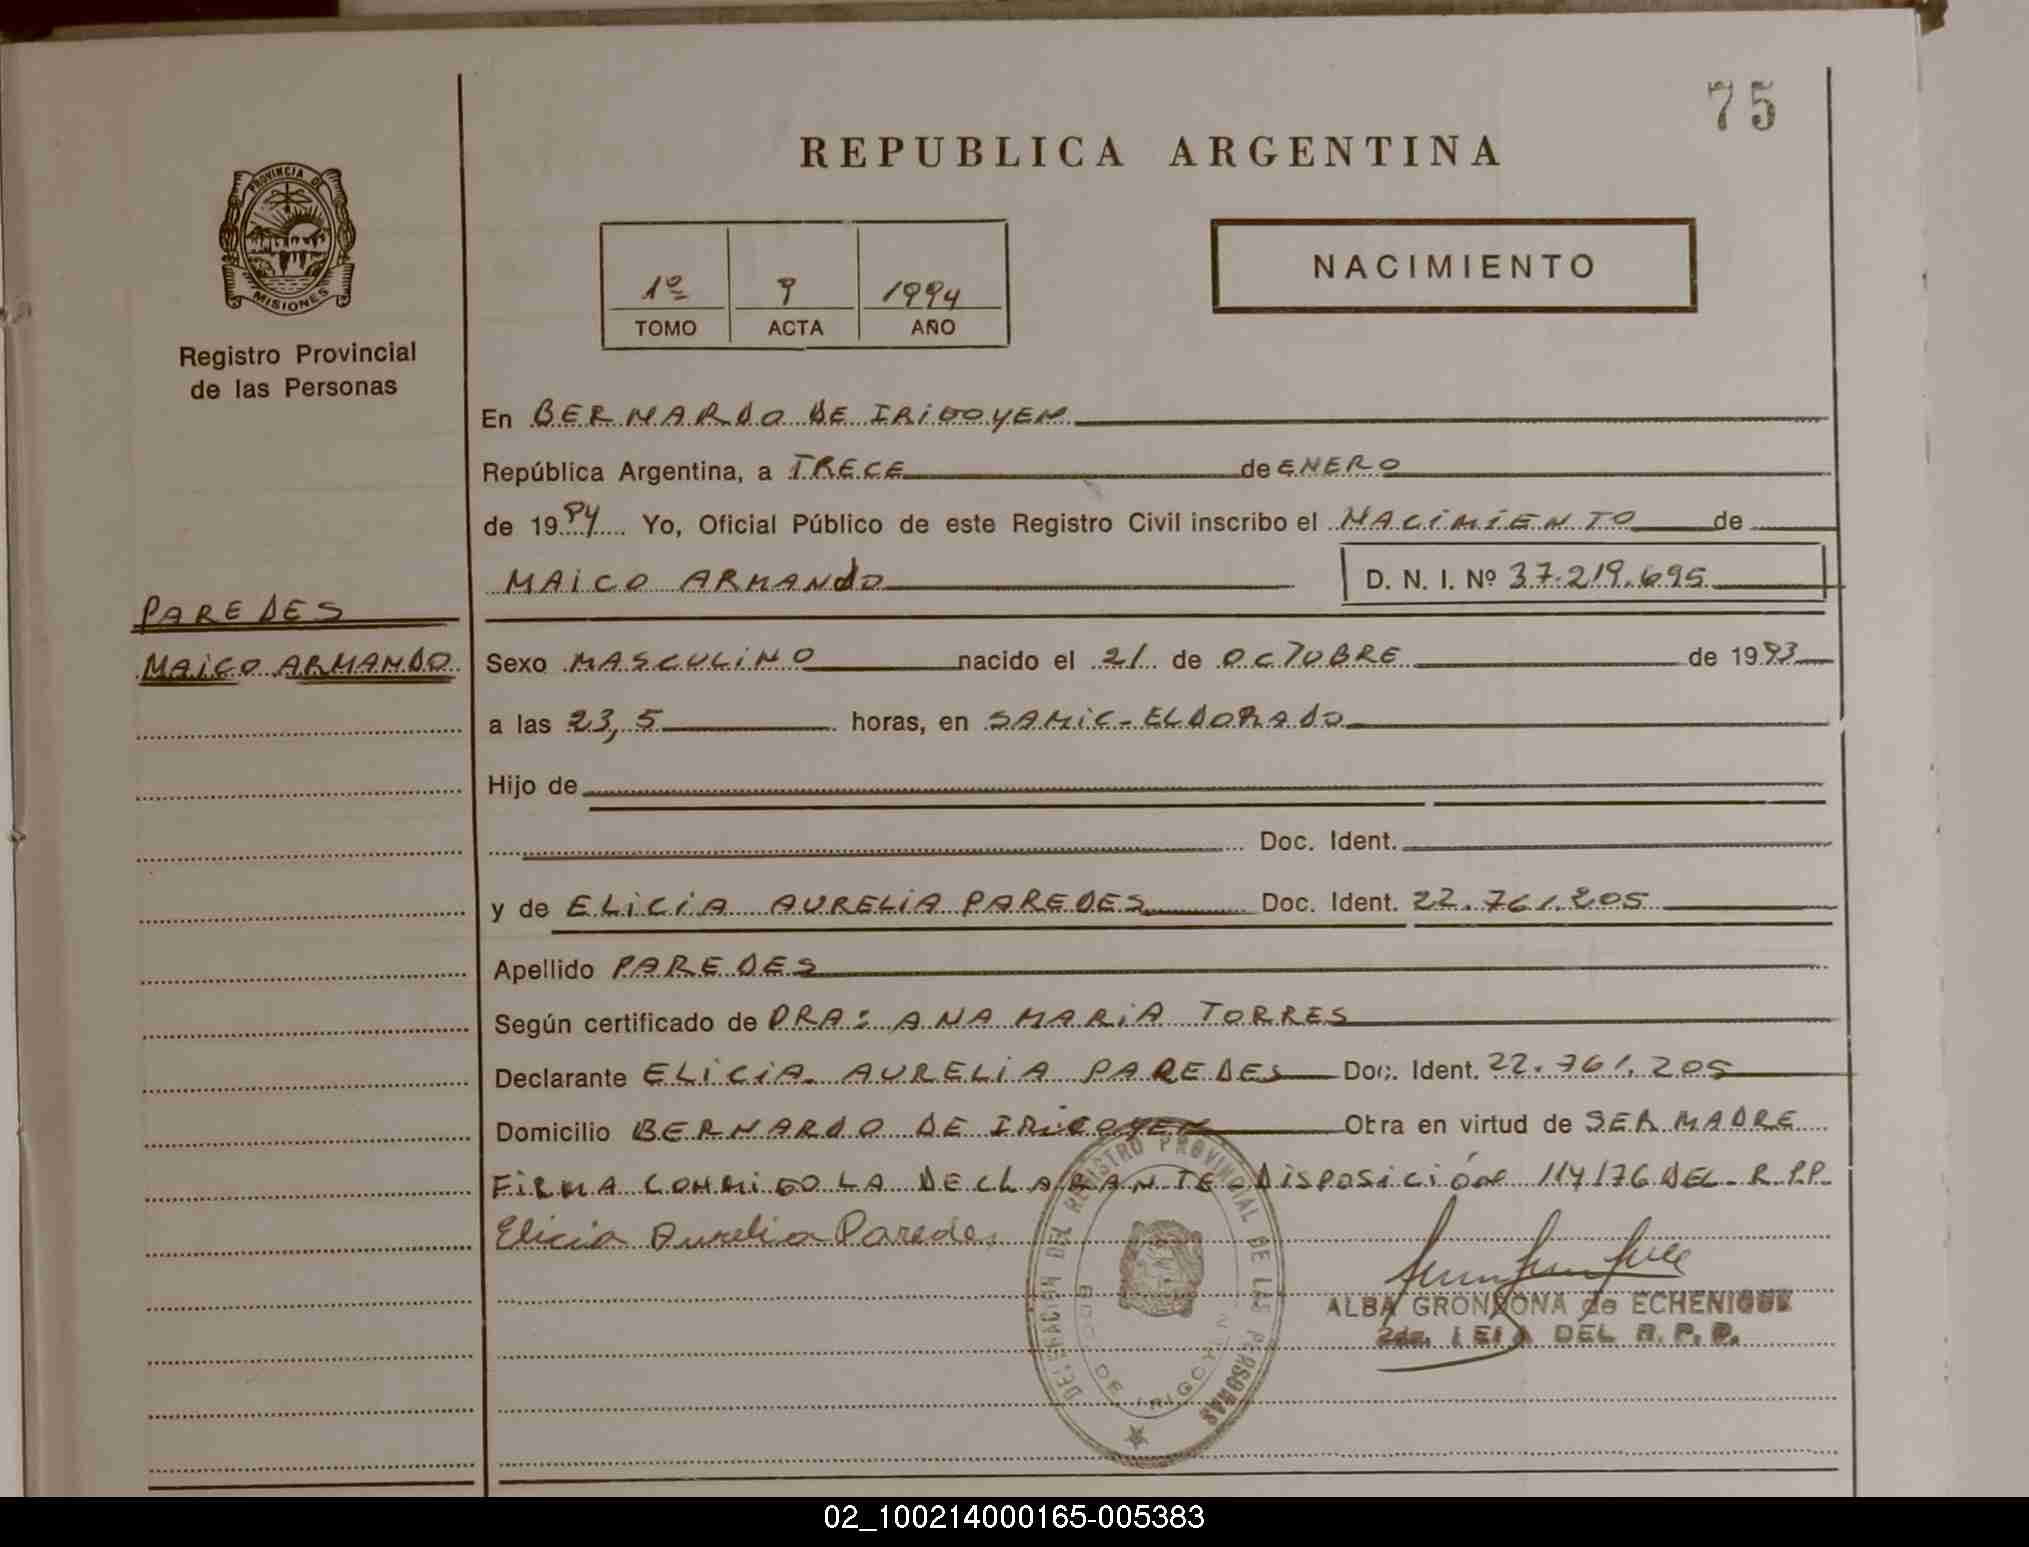 75
REPUBLICA ARGENTINA
PROVINCIA DE
MISIONES
Registro Provincial
de las Personas
1º 9 1994
TOMO ACTA AÑO
NACIMIENTO
En BERNARDO DE IRIGOYEN
República Argentina, a TRECE de ENERO
de 1994 Yo, Oficial Público de este Registro Civil inscribo el NACIMIENTO de
MAICO ARMANDO D. N. I. Nº 37.219.695
PAREDES
MAICO ARMANDO
Sexo MASCULINO nacido el 21 de OCTUBRE de 1993
a las 23,5 horas, en SAMIC-ELDORADO
Hijo de
Doc. Ident.
y de ELICIA AURELIA PAREDES Doc. Ident. 22.761.205
Apellido PAREDES
Según certificado de DRA: ANA MARIA TORRES
Declarante ELICIA AURELIA PAREDES Doc. Ident. 22.761.205
Domicilio BERNARDO DE IRIGOYEN Obra en virtud de SER MADRE
FIRMA CONMIGO LA DECLARANTE - DISPOSICIÓN 114/76 DEL R.P.P.
Elicia Aurelia Paredes
DELEGACION DEL REGISTRO PROVINCIAL DE LAS PERSONAS
BDO. DE IRIGOYEN
ALBA GRONDONA de ECHENIQUE
DEL R. P. P.
02_100214000165-005383